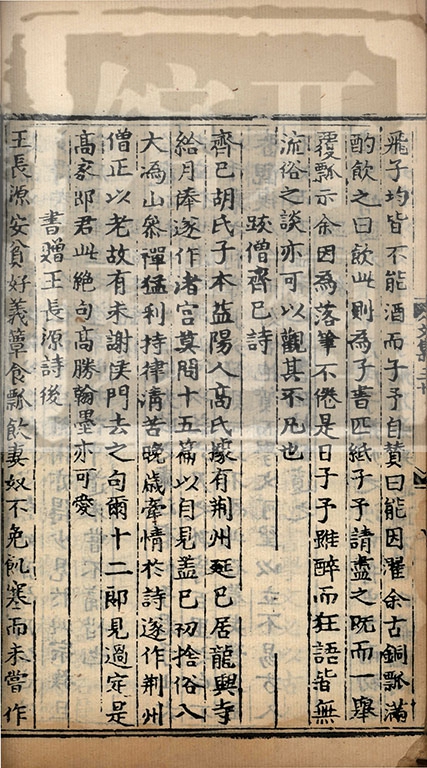 飛子均皆不能酒而子予自贊曰能因濯余古銅瓢滿
酌飲之曰飲此則為子書匹紙子予請盡之既而一舉
覆瓢示余因為落筆不倦是日子予雖醉而狂語皆無
流俗之談亦可以觀其不凡也
跋僧齊己詩
齊己胡氏子本益陽人高氏據有荆州延己居龍興寺
給月俸遂作渚宮莫問十五篇以自見盖已初捨俗入
大溈山參禪猛利持律清苦晚歲牽情於詩遂作荆州
僧正以老故有未謝侯門去之句爾十二郎見過定是
髙家郎君此絶句髙勝翰墨亦可愛
書贈王長源詩後
王長源安貧好義簞食瓢飲妻奴不免飢寒而未嘗作